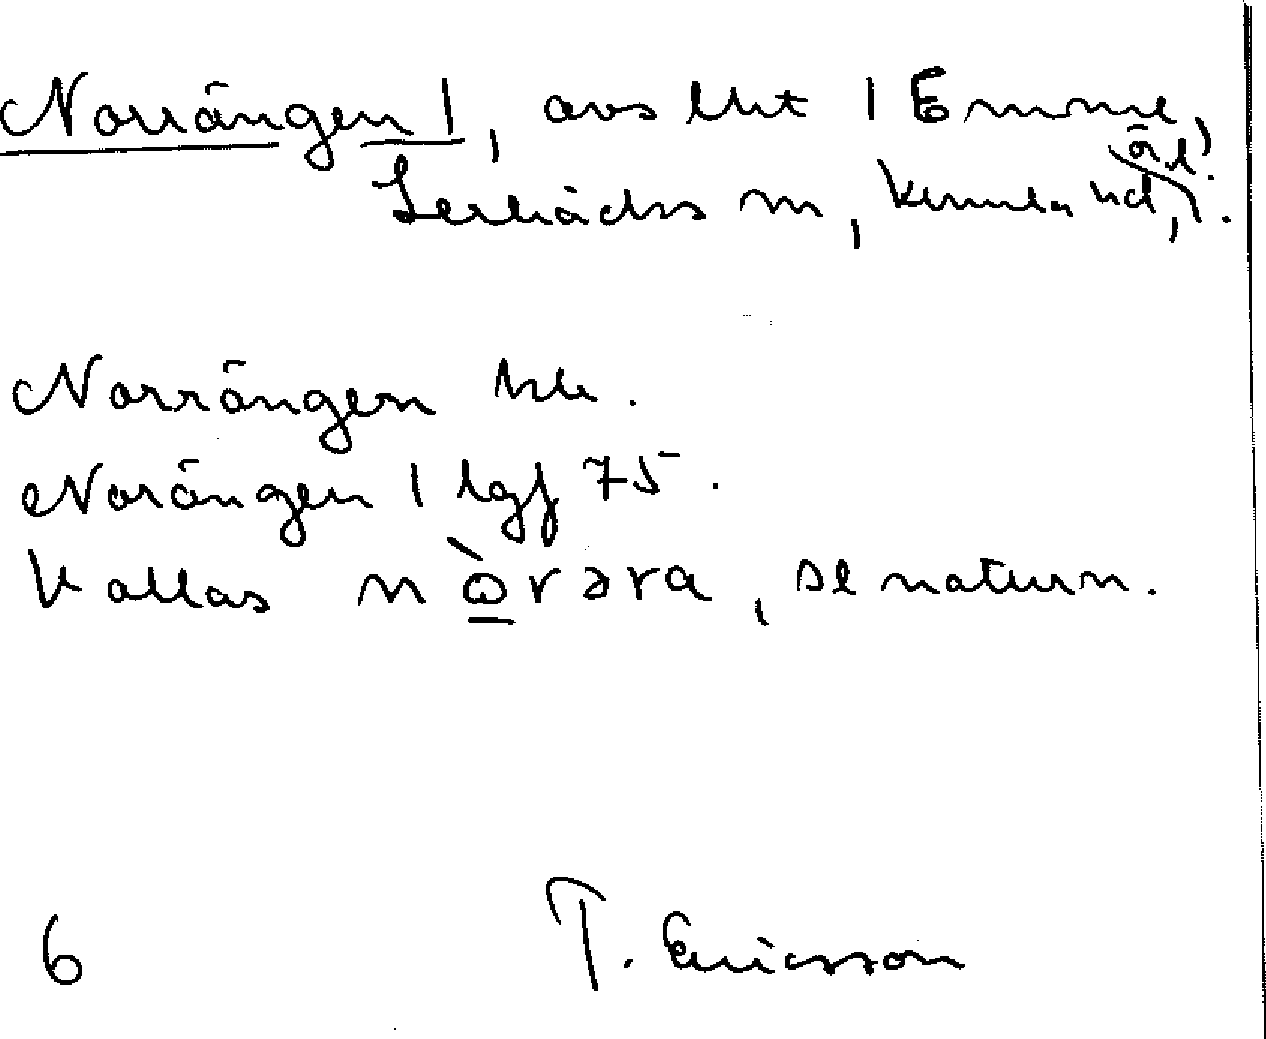 Norrängen 1, avs lht 1 Emme,
Lerbäcks sn, Kumla hd, Ör.
Norrängen
Norängen 1 lgf 75.
Kallas nὼ̲rəra, se naturn.
6 T. Ericsson